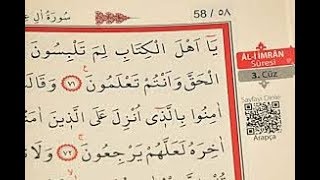 سُورَةُ اٰلِ عِ
58 / ٥٨
يَٓا اَهْلَ الْكِتَابِ لِمَ تَلْبِسُونَ
الْحَقَّ وَاَنْتُمْ تَعْلَمُونَ ٧١ وَقَالَتْ
اٰمِنُوا بِالَّذٖٓي اُنْزِلَ عَلَى الَّذٖينَ اٰمَ
اٰخِرَهُ لَعَلَّهُمْ يَرْجِعُونَ ٧٢ وَلَا
ÂL-İ İMRÂN
Sûresi
3. Cüz
Sayfayı Dinle
Arapça